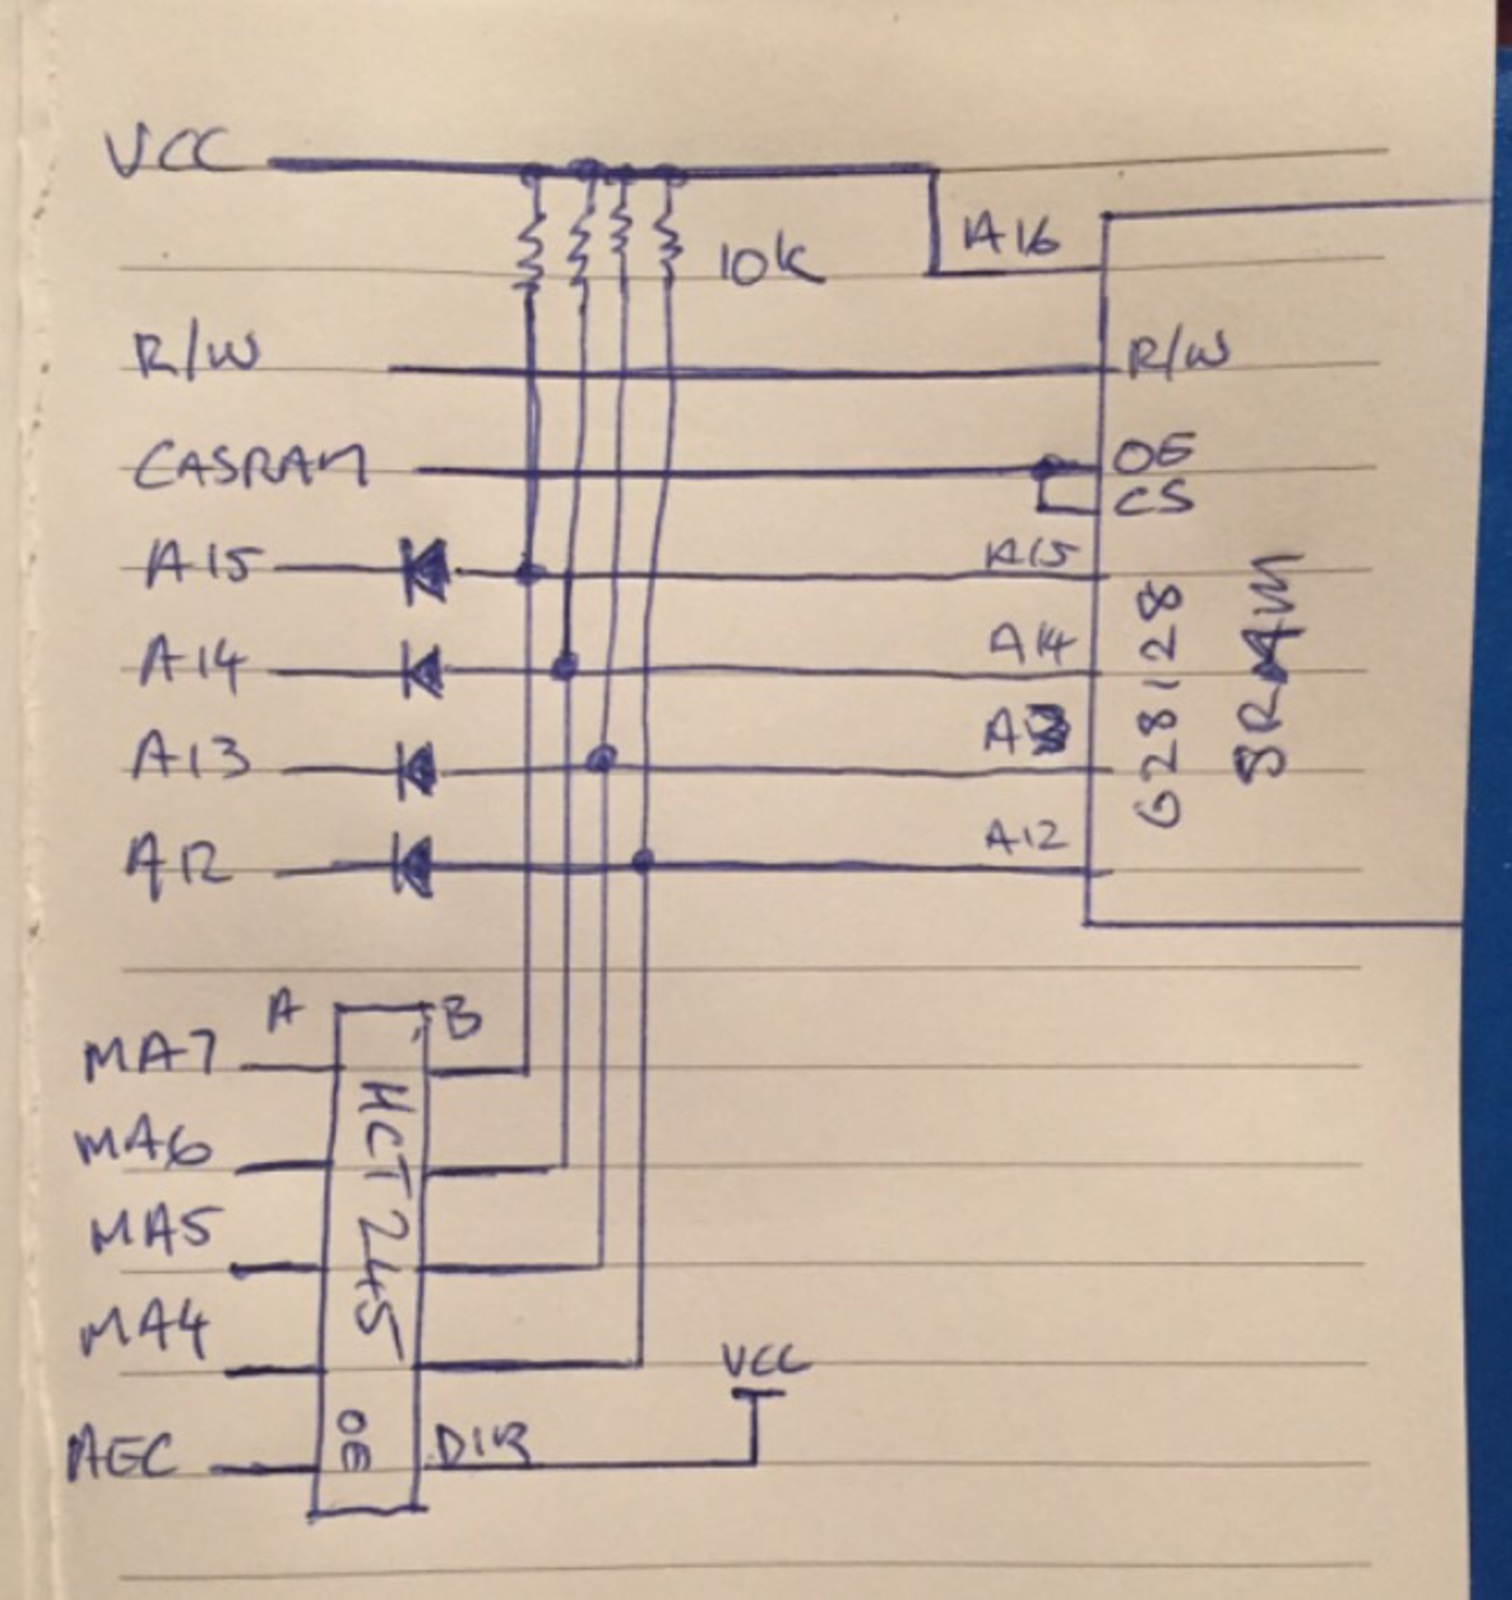 VCC
A16
10K
R/W R/W
CASRAM OE
CS
A15 A15
A14 A14
A13
A12 A12
628128
SRAM
A B
MA7
MA6
MA5
MA4
HCT245
VCC
AEC OE DIR